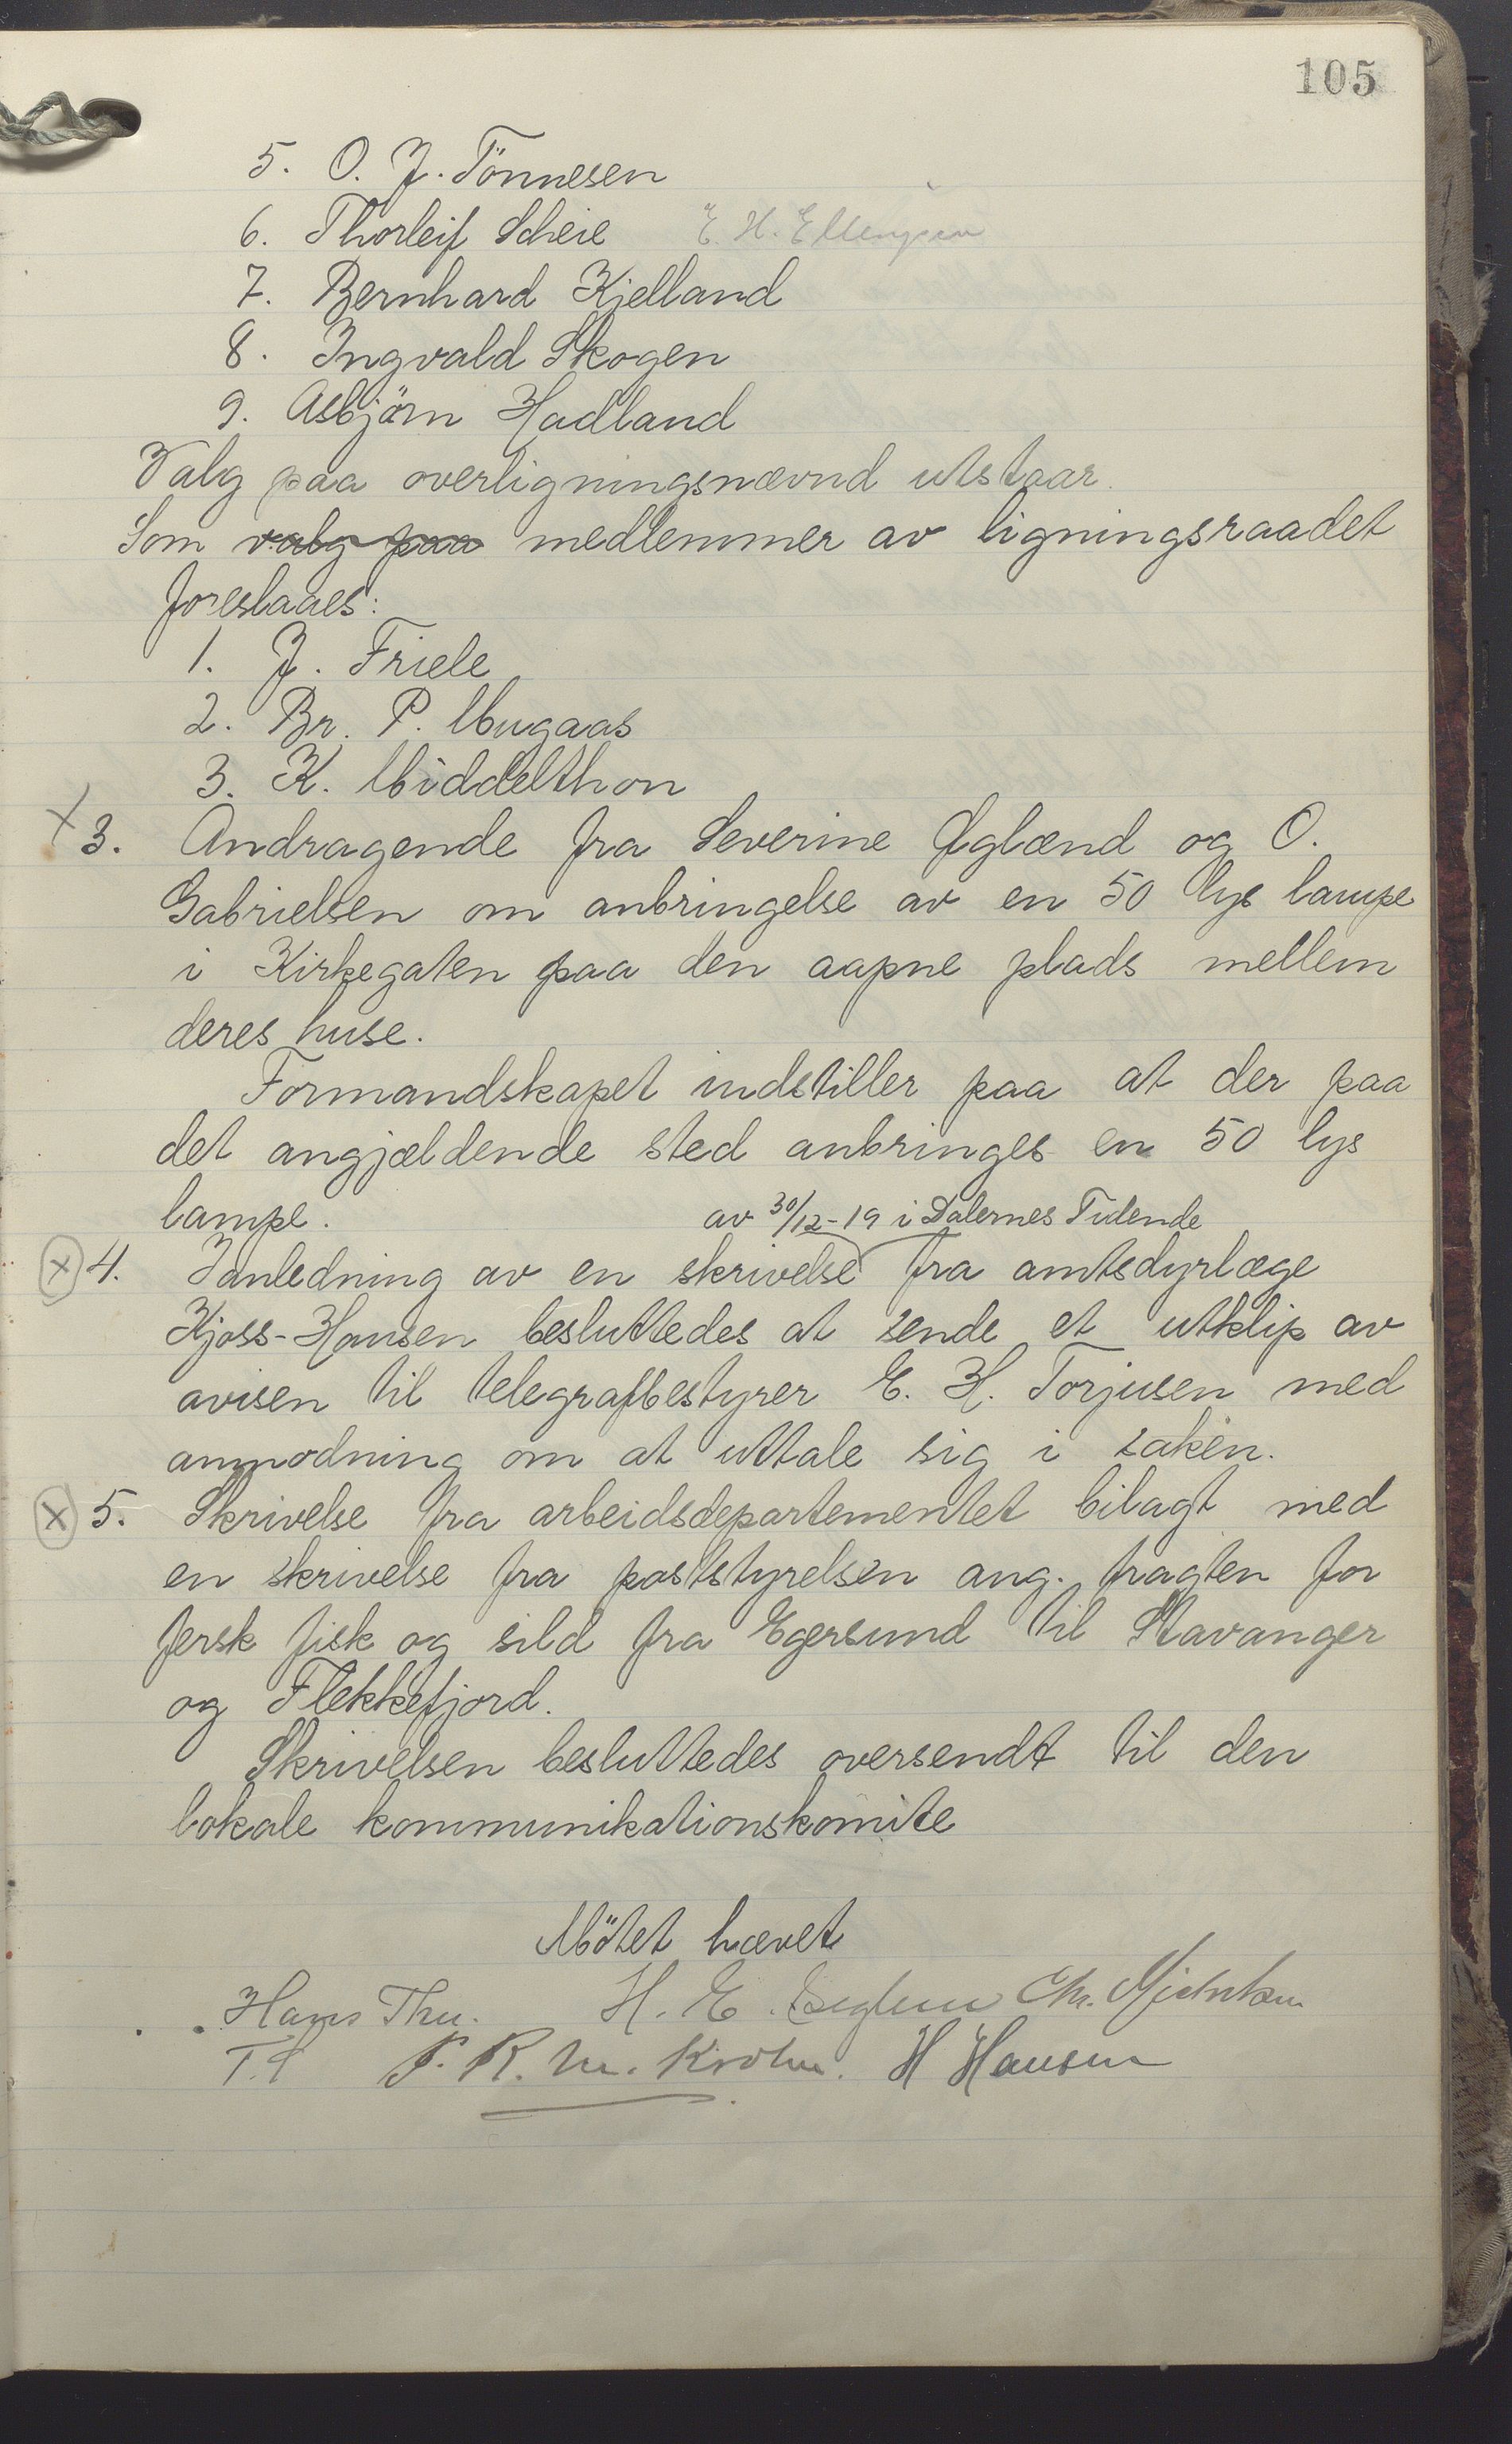 105
5. O. J. Tönnesen
6. Thorleif Scheie E. H. Ellingsen
7. Bernhard Kjelland
8. Ingvald Skogen
9. Asbjörn Hadland
Valg paa overligningsnævnd utstaar.
Som valg paa medlemmer av ligningsraadet
foreslaaes:
1. J. Friele
2. Br. P. Mugaas
3. K. Middelthon
x 3. Andragende fra Severine Øglænd og O.
Gabrielsen om anbringelse av en 50 lys lampe
i Kirkegaten paa den aapne plads mellem
deres huse.
Formandskapet indstiller paa at der paa
det angjældende sted anbringes en 50 lys
lampe.
av 30/12-19 i Dalernes Tidende
x 4. Ianledning av en skrivelse fra amtsdyrlæge
Kjoss-Hansen besluttedes at sende et utklip av
avisen til telegrafbestyrer E. H. Torjusen med
anmodning om at uttale sig i saken.
x 5. Skrivelse fra arbeidsdepartementet bilagt med
en skrivelse fra poststyrelsen ang. fragten for
fersk fisk og sild fra Egersund til Stavanger
og Flekkefjord.
Skrivelsen besluttedes oversendt til den
lokale kommunikationskomite
Mötet hævet
Hans Thu. H. E. Chr.
P. R. M. Krohn. H Hansen